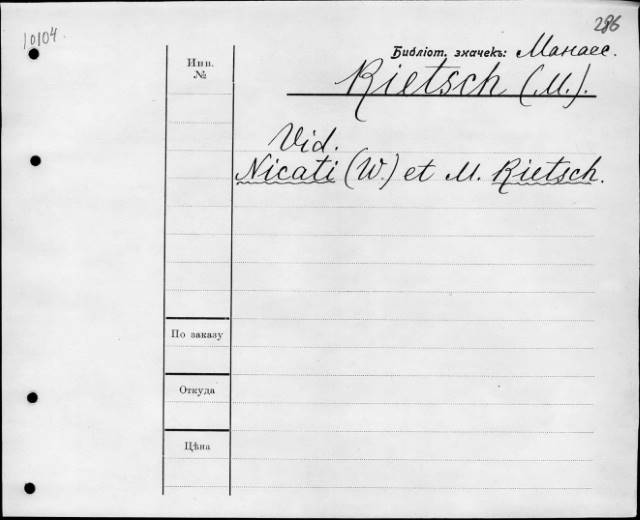 10104.
286
Библіот. значекъ: Манасс.
Инв.
№
Rietsch (M.).
Vid.
Nicati (W.) et M. Rietsch.
По заказу
Откуда
Цѣна